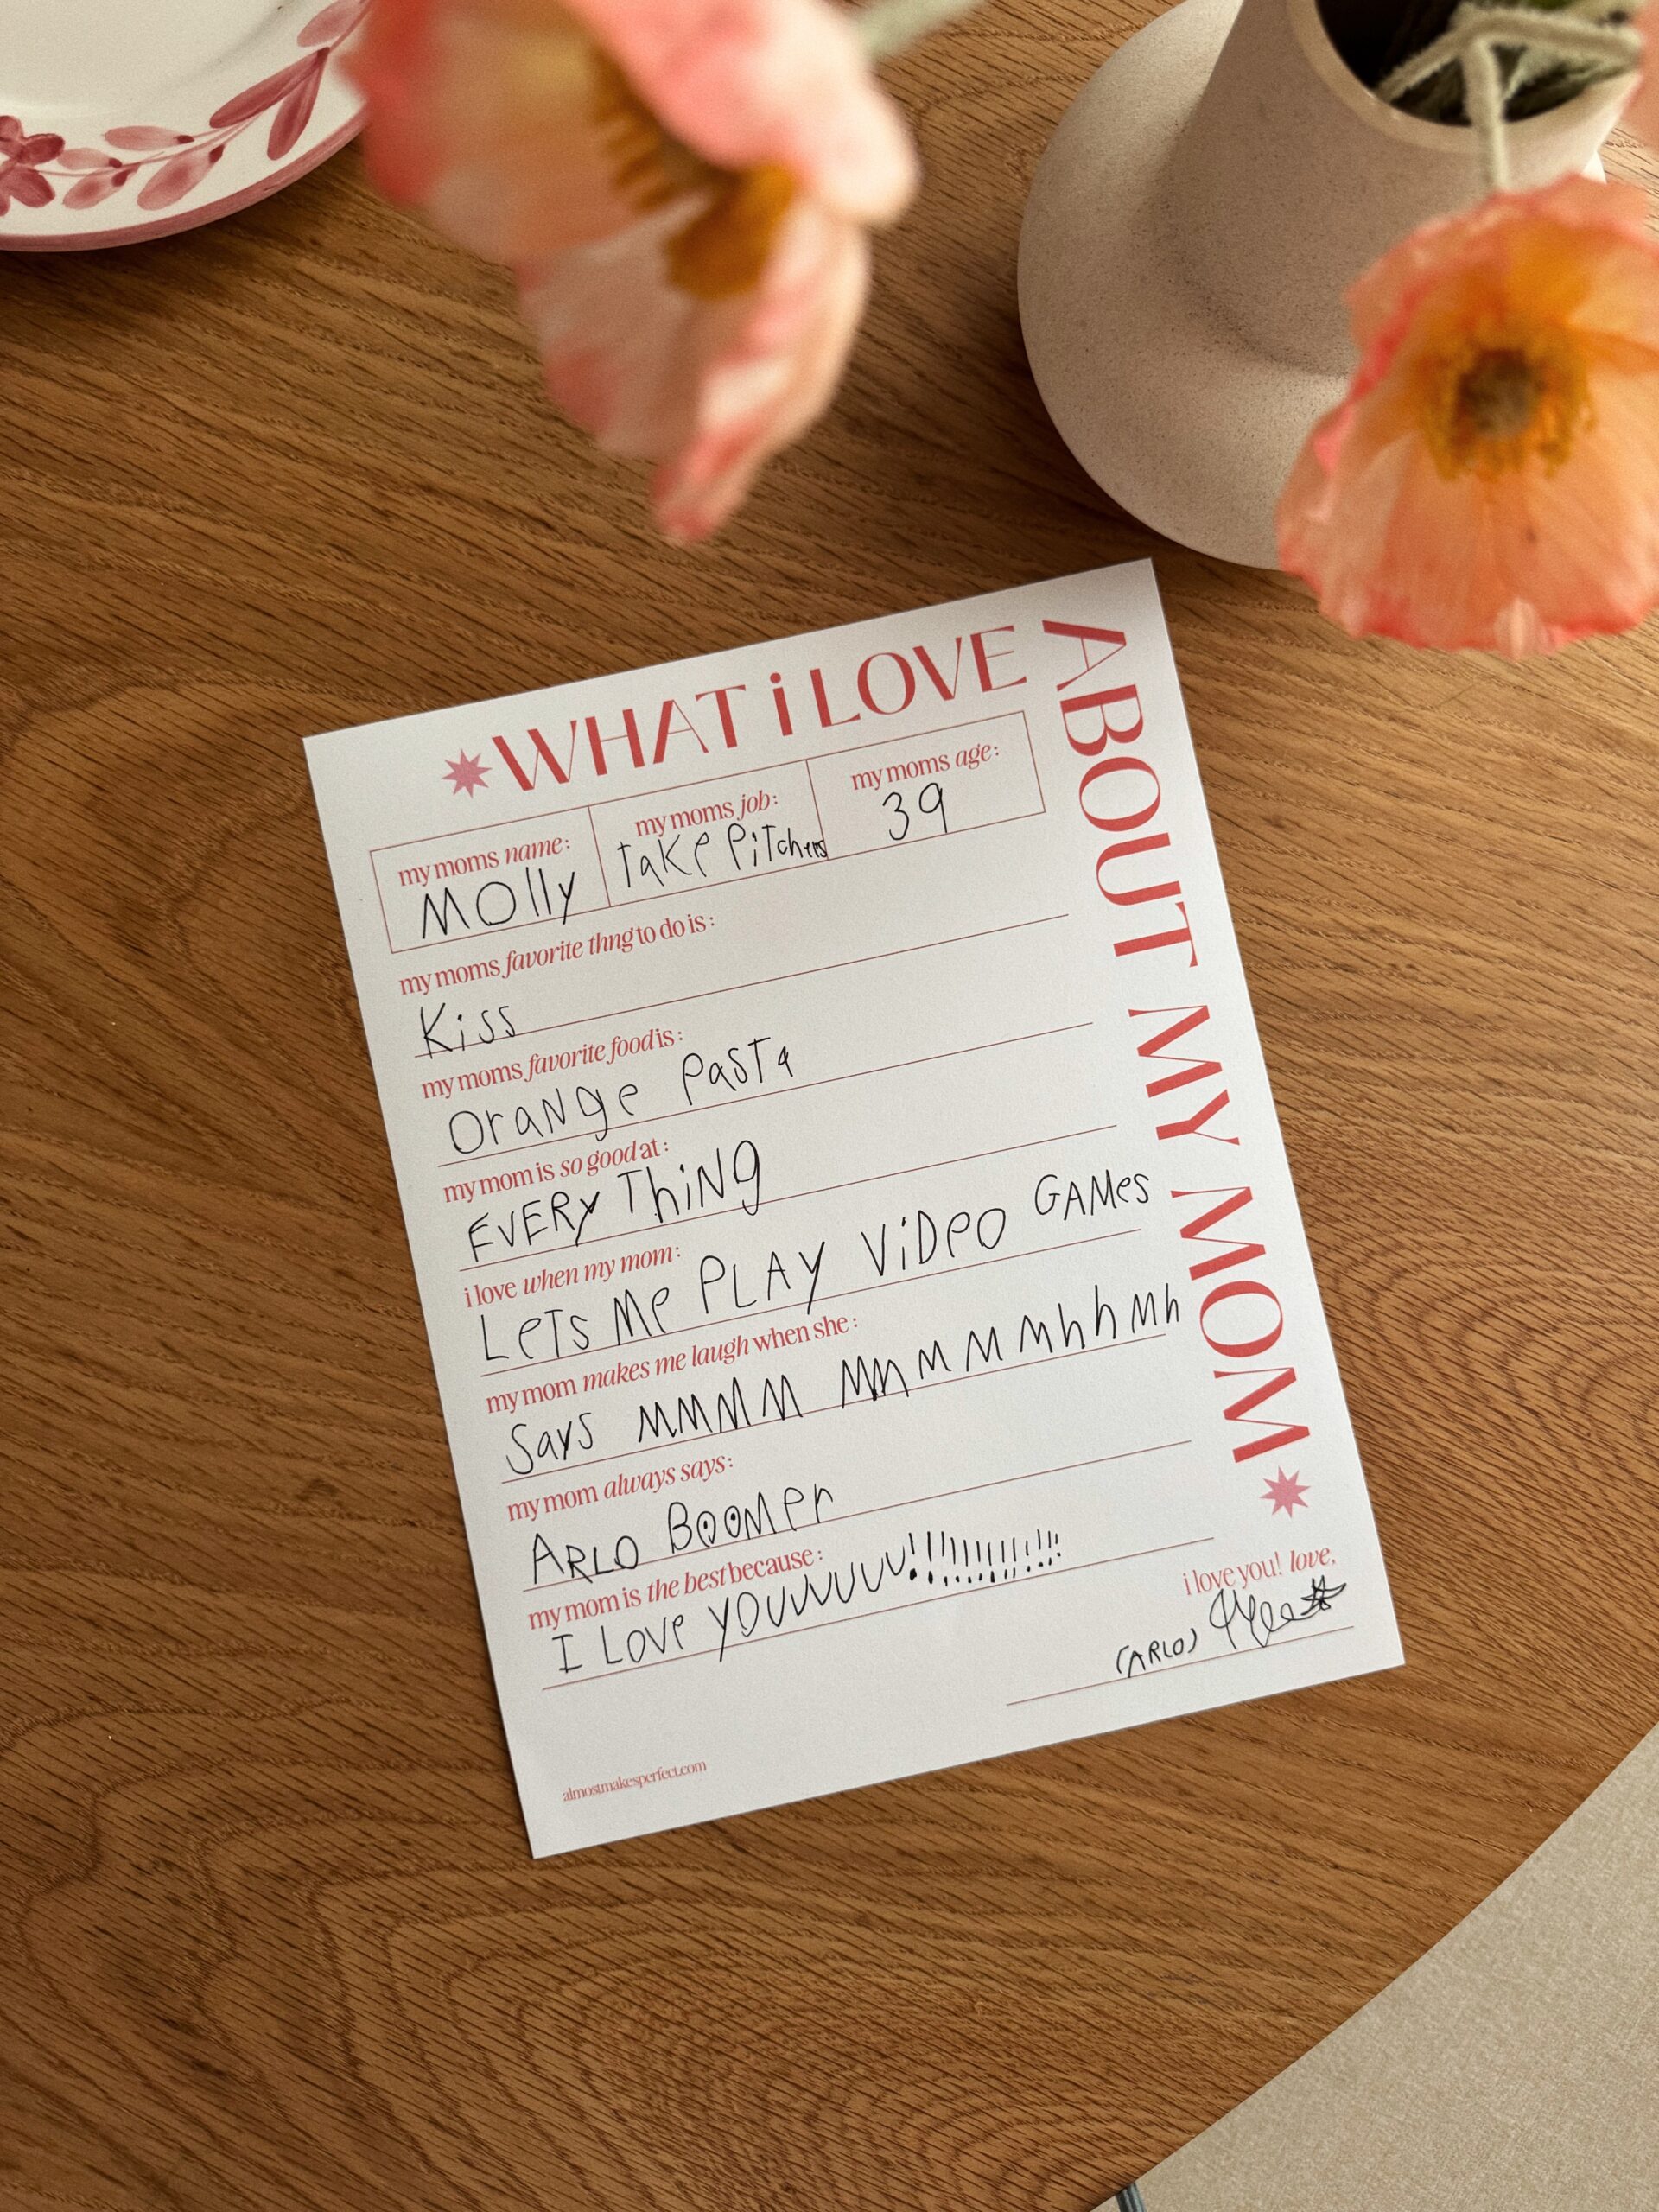 WHAT i LOVE
ABOUT MY MOM
my moms name:
MOlly
my moms job:
TaKe PiTchers
my moms age:
39
my moms favorite thng to do is:
Kiss
my moms favorite food is:
Orange PasTa
my mom is so good at:
EVERY ThiNg
i love when my mom:
LeTs Me PLAY ViDeO GAMes
my mom makes me laugh when she:
Says MMMM MMMMMhhMh
my mom always says:
ARLO BOOMer
my mom is the best because:
I Love YOUUUUUU!!!!!!!!!!!!!
i love you! love,
(ARLO)
almostmakesperfect.com